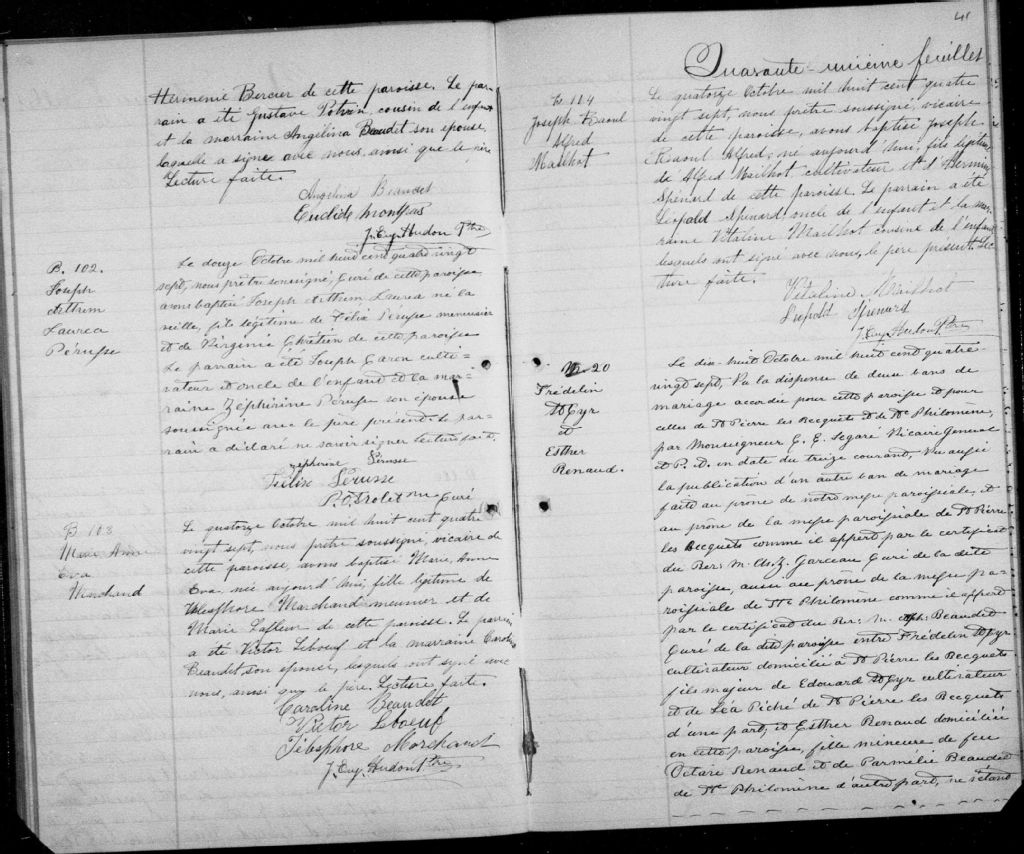 Hermenie Bercier de cette paroisse. Le par
rain a été Gustave Potvin, cousin de l'enfant
et la marraine Angélina Beaudet son épouse,
laquelle a signé avec nous, ainsi que le père
Lecture faite.
Angelina Beaudet
Euclide Montpas
J. Eug. Hudon Ptre
B. 102.
Joseph
Arthem
Laurea
Pérusse
Le douze Octobre mil huit cent quatre vingt
sept, nous prêtre soussigné, Curé de cette paroisse
avons baptisé Joseph Arthem Laurea né la
veille, fils légitime de Félix Pérusse menuisier
et de Virginie Chrétien de cette paroisse
Le parrain a été Joseph Caron culti-
vateur et oncle de l'enfant et la mar-
raine Zéphirine Pérusse son épouse
soussignée avec le père présent. Le par-
rain a déclaré ne savoir signer. Lecture faite.
Zephirine Perusse
Félix Perusse
P. O. Drolet Ptre Curé
B 103
Marie Anne
Eva
Marchand
Le quatorze Octobre mil huit cent quatre
vingt sept, nous prêtre soussigné, vicaire de
cette paroisse, avons baptisé Marie, Anne
Eva, née aujourd'hui, fille légitime de
Télesphore Marchand meunier et de
Marie Lafleur de cette paroisse. Le parrain
a été Victor Leboeuf et la marraine Caroline
Beaudet son épouse, lesquels ont signé avec
nous, ainsi que le père. Lecture faite.
Caroline Beaudet
Victor Leboeuf
Télesphore Marchand
J. Eug. Hudon Ptre
41
Quarante-unième feuillet
B 104
Joseph Raoul
Alfred
Mailhot
Le quatorze Octobre mil huit cent quatre
vingt sept, nous prêtre soussigné, vicaire
de cette paroisse, avons baptisé Joseph
Raoul Alfred, né aujourd'hui, fils légitime
de Alfred Mailhot cultivateur et d'Hermine
Spénard de cette paroisse. Le parrain a été
Léopold Spénard oncle de l'enfant et la mar-
raine Vitaline Mailhot cousine de l'enfant
lesquels ont signé avec nous, le père présent. Lec
ture faite.
Vitaline Mailhot
Léopold Spenard
J. Eug. Hudon Ptre
M. 20
Frédelin
St Cyr
et
Esther
Renaud.
Le dix-huit Octobre mil huit cent quatre
vingt sept, Vu la dispense de deux bans de
mariage accordée pour cette paroisse et pour
celles de St Pierre les Becquets et de Ste Philomène,
par Monseigneur C. E. Legaré Vicaire Général
et P. D. en date du treize courant, Vu aussi
la publication d'un autre ban de mariage
faite au prône de notre messe paroissiale, et
au prône de la messe paroissiale de St Pierre
les Becquets comme il appert par le certificat
du Rev: M. Z. Garceau Curé de la dite
paroisse, aussi au prône de la messe pa-
roissiale de Ste Philomène comme il appert
par le certificat du Rev: M. Beaudet
Curé de la dite paroisse entre Frédelin St Cyr
cultivateur domicilié à St Pierre les Becquets
fils majeur de Edouard St Cyr cultivateur
et de Léa Piché de St Pierre les Becquets
d'une part, et Esther Renaud domiciliée
en cette paroisse, fille mineure de feu
Octave Renaud et de Parmélie Beaudet
de Ste Philomène d'autre part, ne s'étant